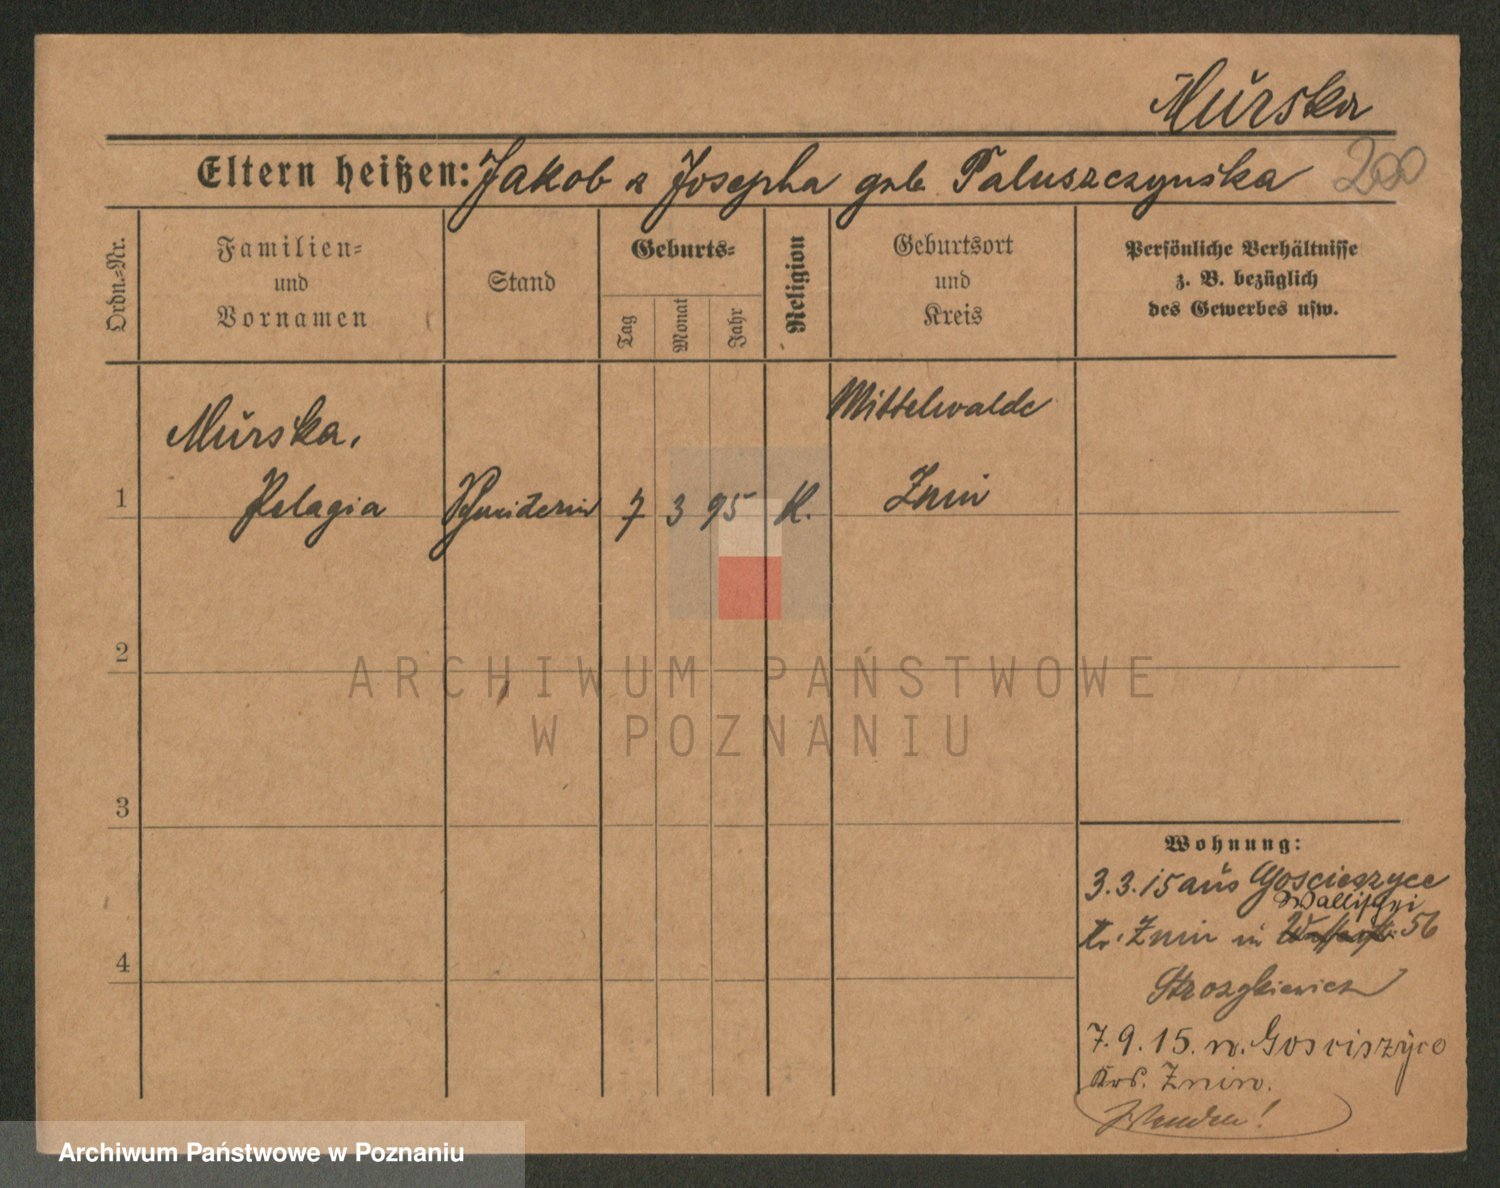 Murska
Eltern heißen: Jakob & Josepha geb Paluszczynska
200
Ordn.-Nr.
Familien- und Vornamen
Stand
Geburts-
Tag
Monat
Jahr
Religion
Geburtsort und Kreis
Persönliche Verhältnisse
z. B. bezüglich
des Gewerbes usw.
Mittelwalde
Murska,
1 Pelagia Schneiderin 7 3 95 K. Znin
2
ARCHIWUM PAŃSTWOWE
W POZNANIU
3
Wohnung:
3.3.15 aus Goscieszyce
Wallischei
Kr. Znin in 56
7.9.15. n. Gosciszyce
Krs. Znin.
Wenden!
4
Archiwum Państwowe w Poznaniu